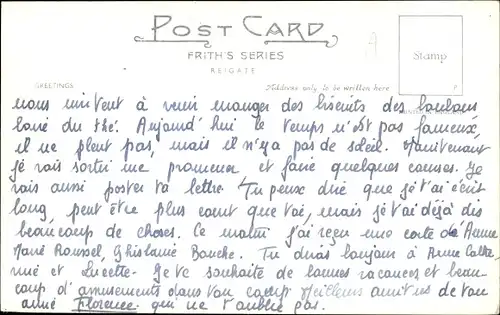 POST CARD
FRITH'S SERIES
REIGATE
Stamp
GREETINGS
Address only to be written here
nous invitent à venir manger des biscuits des bonbons
boire du thé. Aujourd'hui le temps n'est pas fameux,
il ne pleut pas, mais il n'y a pas de soleil. Maintenant
je vais sortir me promener et faire quelques courses. Je
vais aussi poster ta lettre. Tu peux dire que je t'ai écrit
long, peut être plus court que toi, mais je t'ai déjà dis
beaucoup de choses. Ce matin j'ai reçu une carte de Anne
Marie Roussel, Ghislaine Bouche. Tu diras bonjour à Anne Cathe
rine et Lucette. Je te souhaite de bonnes vacances et beau
coup d'amusements dans ton camp Meilleurs amitiés de ton
amie Florence qui ne t'oublie pas.